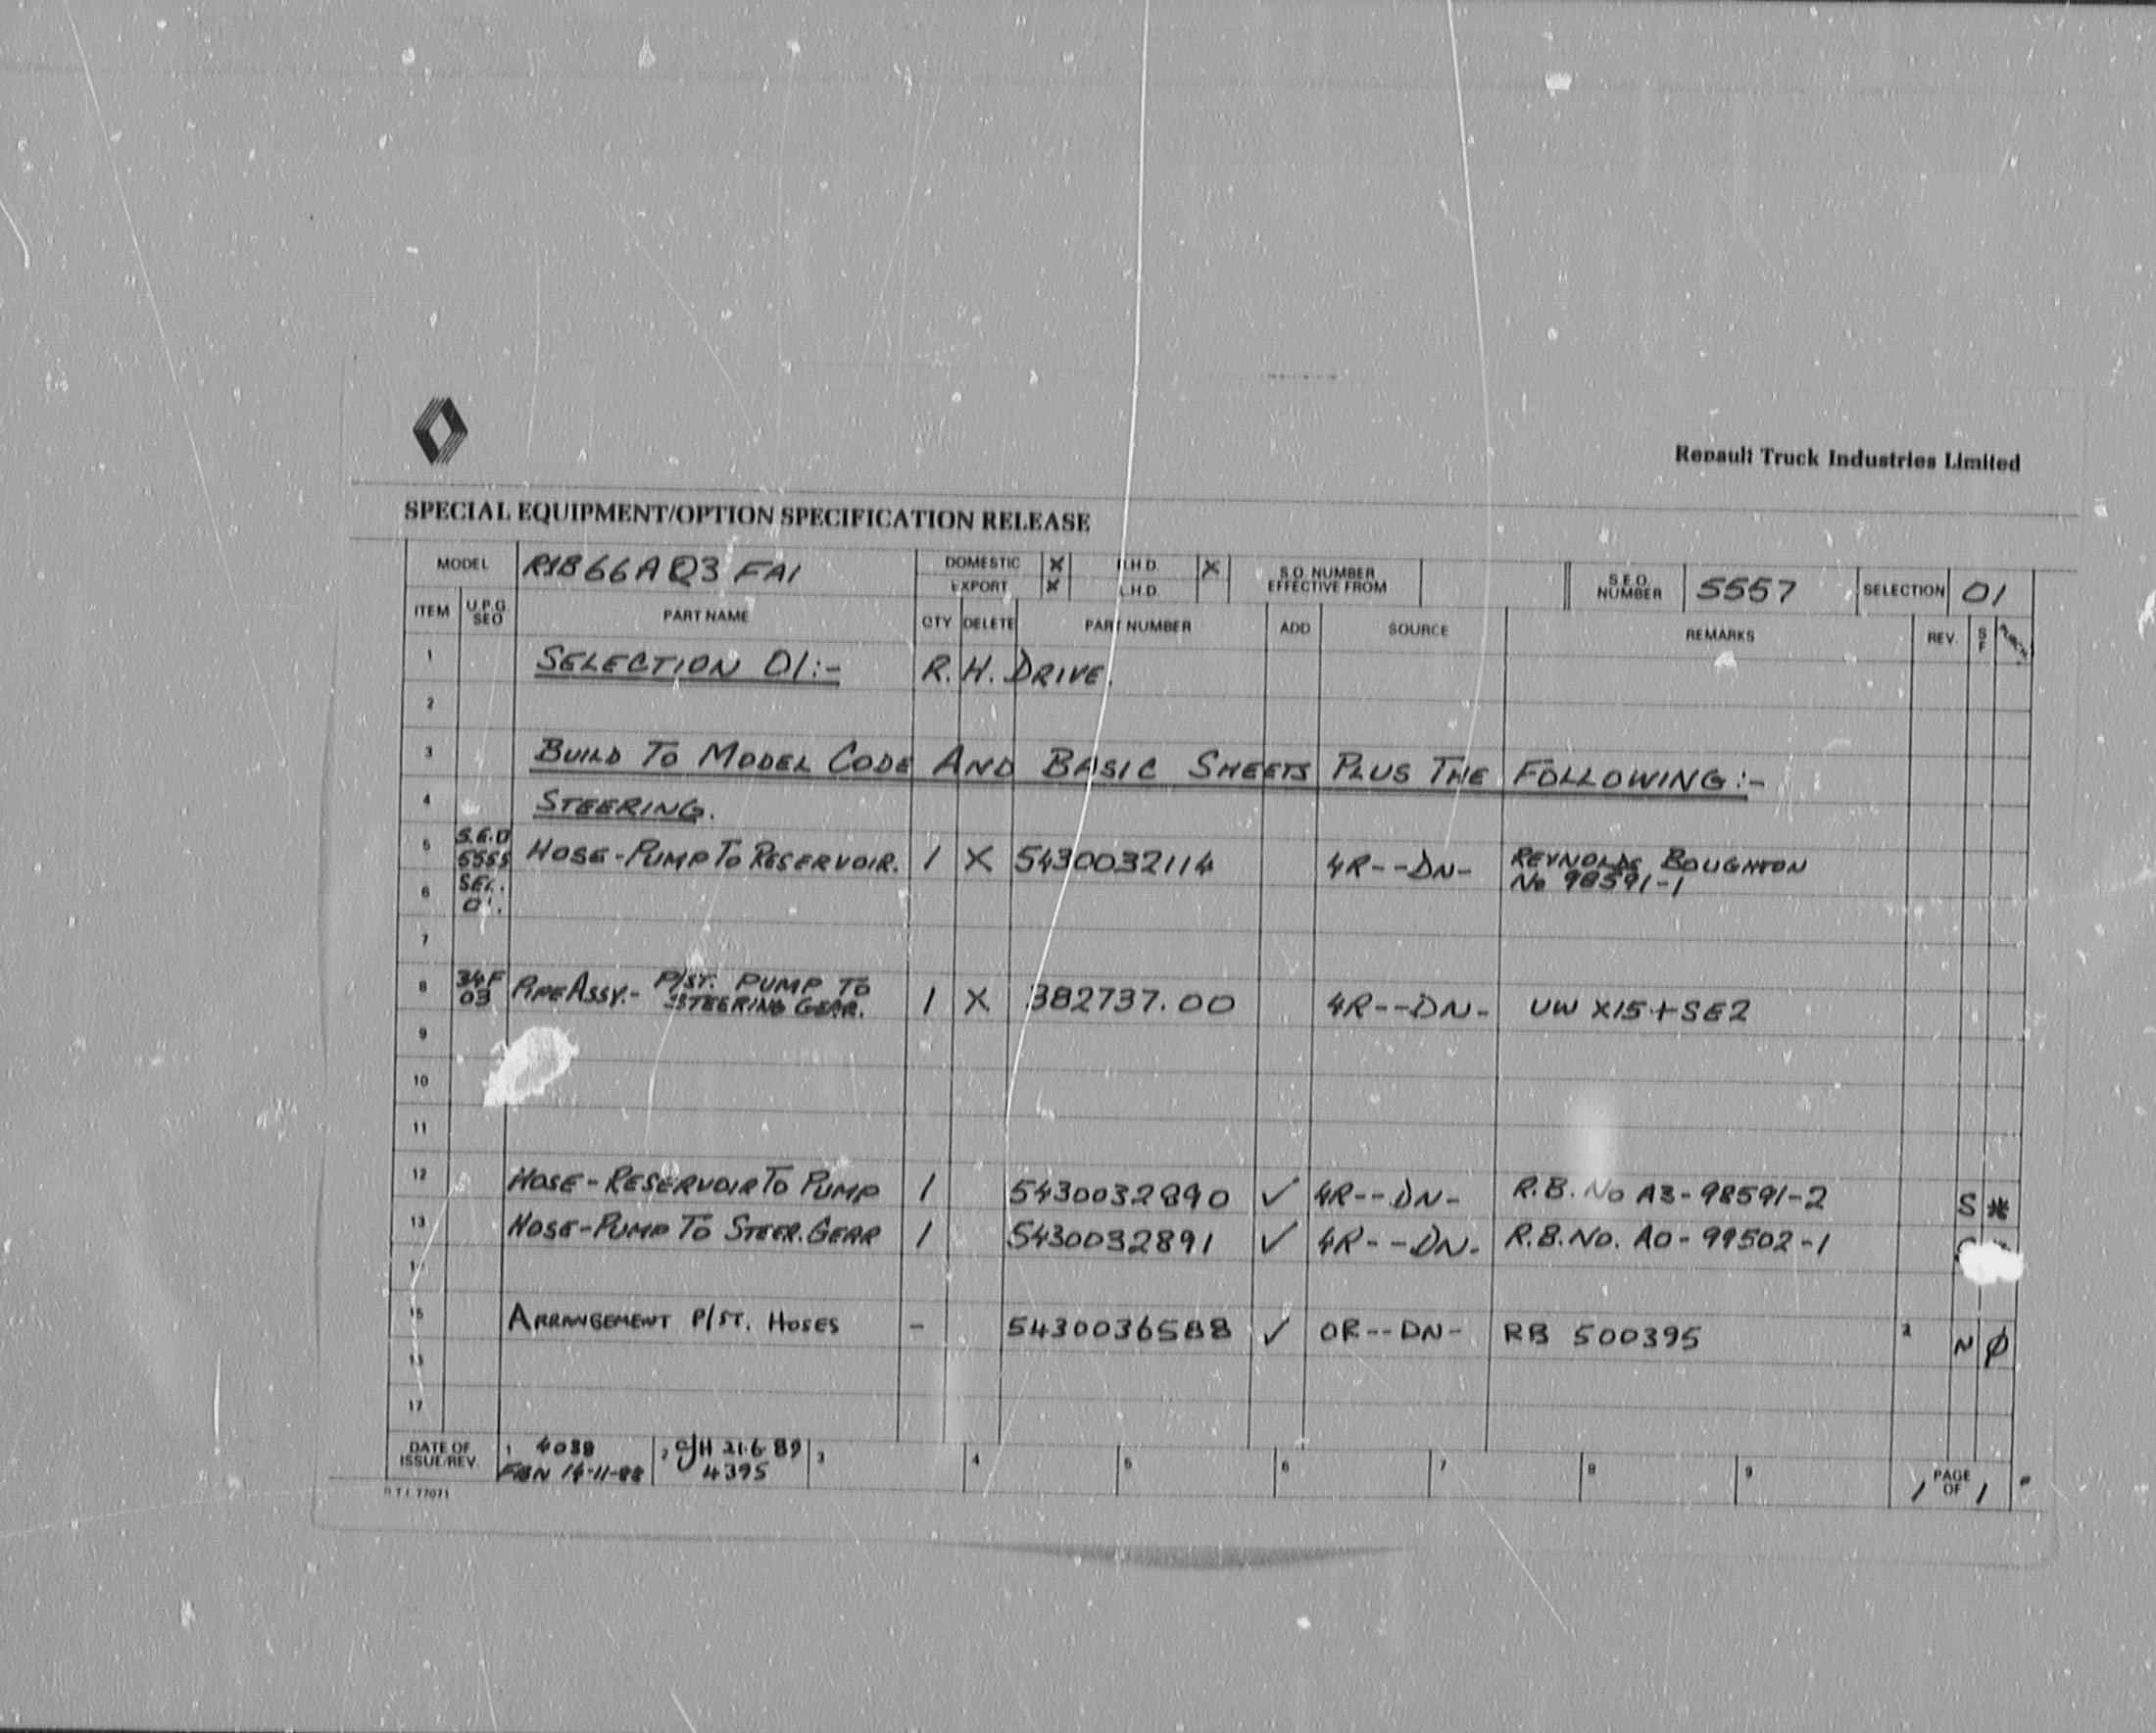 Renault Truck Industries Limited
SPECIAL EQUIPMENT/OPTION SPECIFICATION RELEASE
MODEL R1866AQ3 FA1 DOMESTIC X R.H.D. X S.O. NUMBER EFFECTIVE FROM S.E.O. NUMBER 5557 SELECTION 01
EXPORT X L.H.D.
ITEM U.P.G. SEO PART NAME QTY DELETE PART NUMBER ADD SOURCE REMARKS REV. S F
1 SELECTION 01:- R.H. DRIVE.
2
3 BUILD TO MODEL CODE AND BASIC SHEETS PLUS THE FOLLOWING:-
4 STEERING.
5 S.E.O 5555 HOSE-PUMP TO RESERVOIR. 1 X 5430032114 4R--DN- REYNOLDS BOUGHTON
6 SEL. No 98591-1
7
8 34F 03 PIPE ASSY.- P/ST. PUMP TO STEERING GEAR. 1 X 382737.00 4R--DN- UW X15+SE2
9
10
11
12 HOSE-RESERVOIR TO PUMP 1 5430032890 ✓ 4R--DN- R.B. No A3-98591-2 S *
13 HOSE-PUMP TO STEER. GEAR 1 5430032891 ✓ 4R--DN- R.B. NO. A0-99502-1
15 ARRANGEMENT P/ST. HOSES - 5430036588 ✓ OR--DN- RB 500395 2 N Ø
17
DATE OF ISSUE/REV. 1 4038 2 CJH 21.6.89 3 4 5 6 7 8 9 1 PAGE OF 1
14-11-88 4395
R.T.I. 77071